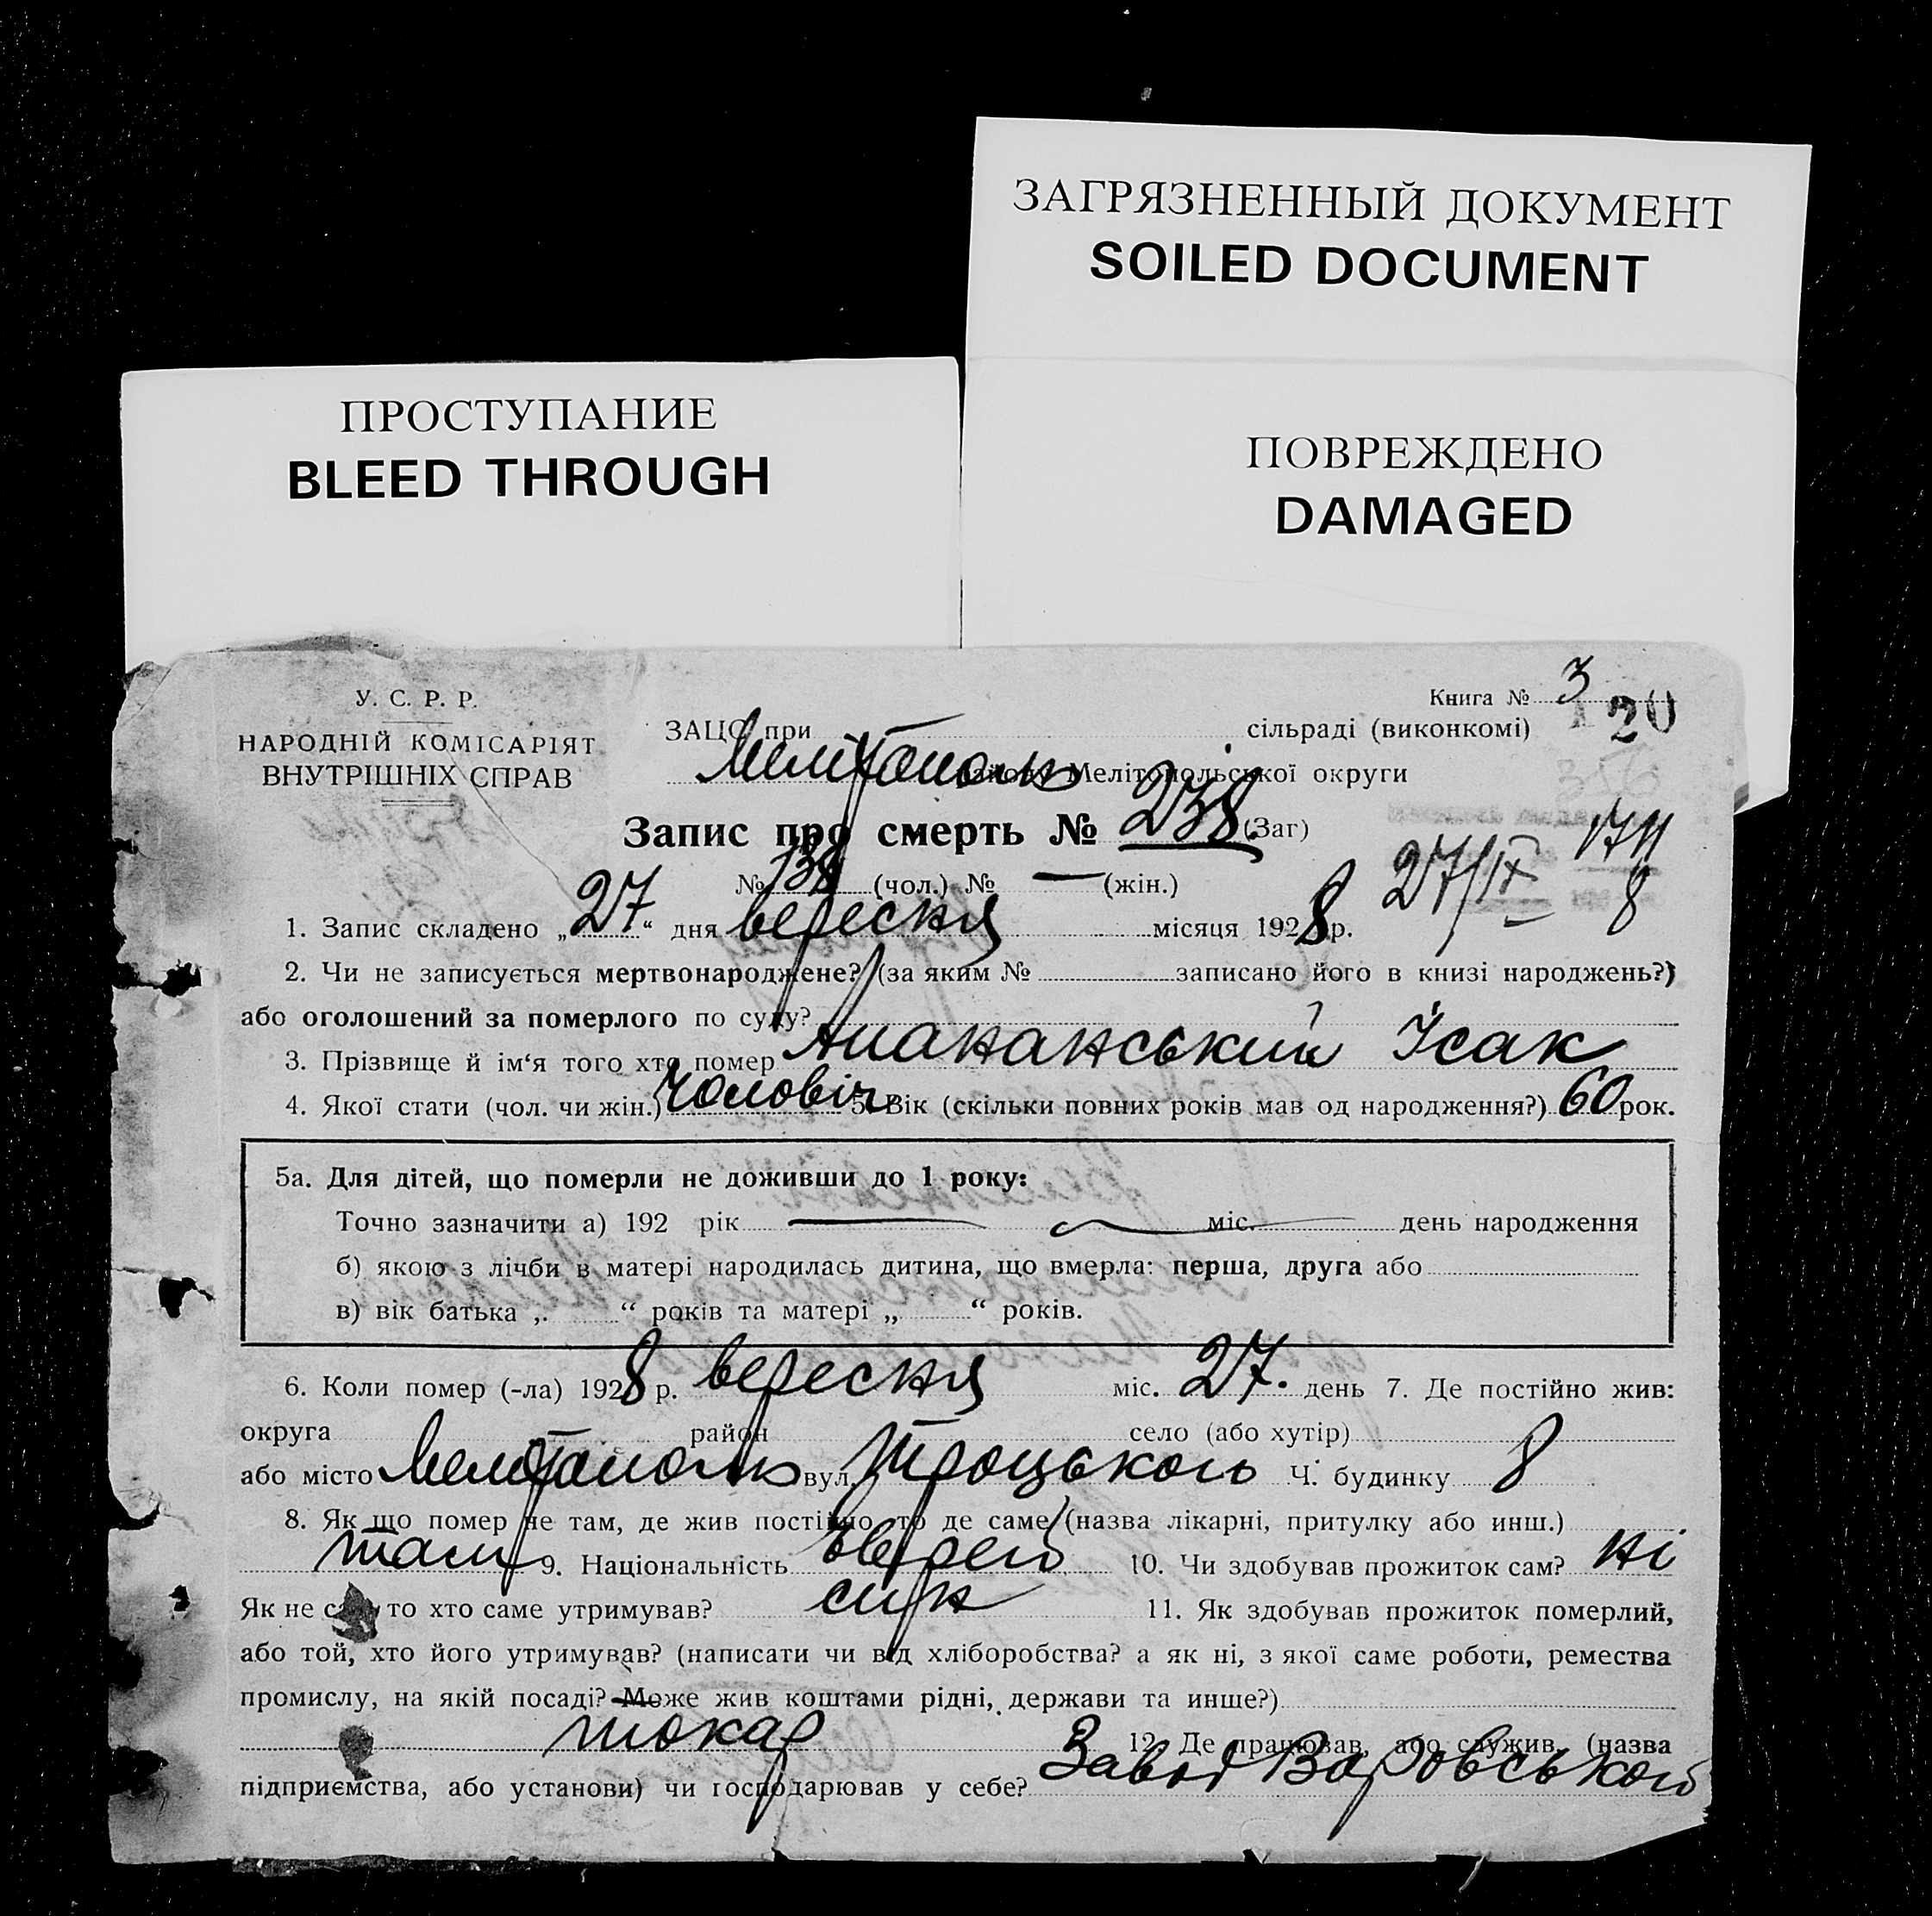 ЗАГРЯЗНЕННЫЙ ДОКУМЕНТ
SOILED DOCUMENT
ПРОСТУПАНИЕ
BLEED THROUGH
ПОВРЕЖДЕНО
DAMAGED
У. С. Р. Р.
НАРОДНІЙ КОМІСАРІЯТ
ВНУТРІШНІХ СПРАВ
Книга № 3
20
ЗАЦС при сільраді (виконкомі)
Мелітополь району Мелітопольської округи
Запис про смерть № 238 (Заг)
№ 138 (чол.) № — (жін.)
27/IX 8
1. Запис складено „27“ дня вересня місяця 1928 р.
2. Чи не записується мертвонароджене? (за яким № записано його в книзі народжень?)
або оголошений за померлого по суду?
3. Прізвище й ім‘я того хто помер Ананський Ісак
4. Якої стати (чол. чи жін.) чоловіч 5. Вік (скільки повних років мав од народження?) 60 рок.
5а. Для дітей, що померли не доживши до 1 року:
Точно зазначити а) 192 рік міс. день народження
б) якою з лічби в матері народилась дитина, що вмерла: перша, друга або
в) вік батька „ “ років та матері „ “ років.
6. Коли помер (-ла) 1928 р. вересня міс. 27. день 7. Де постійно жив:
округа район село (або хутір)
або місто Мелітополь вул. Троцького Ч. будинку 8
8. Як що помер не там, де жив постійно то де саме (назва лікарні, притулку або инш.)
там 9. Національність Еврей 10. Чи здобував прожиток сам? ні
Як не сам, то хто саме утримував? син 11. Як здобував прожиток померлий,
або той, хто його утримував? (написати чи від хліборобства? а як ні, з якої саме роботи, ремества
промислу, на якій посаді? Може жив коштами рідні, держави та инше?)
токар 12. Де працював, або служив (назва
підприємства, або установи) чи господарював у себе? Завод Воровського